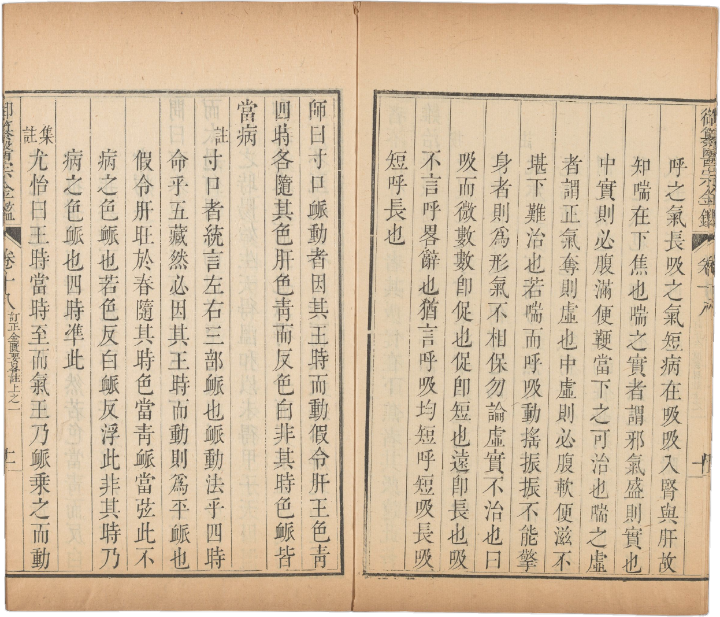 御纂醫宗金鑑 卷十八 十
呼之氣長吸之氣短病在吸吸入腎與肝故
知喘在下焦也喘之實者謂邪氣盛則實也
中實則必腹滿便鞕當下之可治也喘之虛
者謂正氣奪則虛也中虛則必腹軟便滋不
堪下難治也若喘而呼吸動搖振振不能擎
身者則爲形氣不相保勿論虛實不治也曰
吸而微數數卽促也促卽短也遠卽長也吸
不言呼畧辭也猶言呼吸均短呼短吸長吸
短呼長也
師曰寸口䘑動者因其王時而動假令肝王色靑
四時各隨其色肝色靑而反色白非其時色䘑皆
當病
註 寸口者統言左右三部䘑也䘑動法乎四時
命乎五藏然必因其王時而動則爲平䘑也
假令肝旺於春隨其時色當靑䘑當弦此不
病之色䘑也若色反白䘑反浮此非其時乃
病之色䘑也四時準此
集註 尤怡曰王時當時至而氣王乃䘑乘之而動
御纂醫宗金鑑 卷十八 訂正金匱要畧註上之一 十一